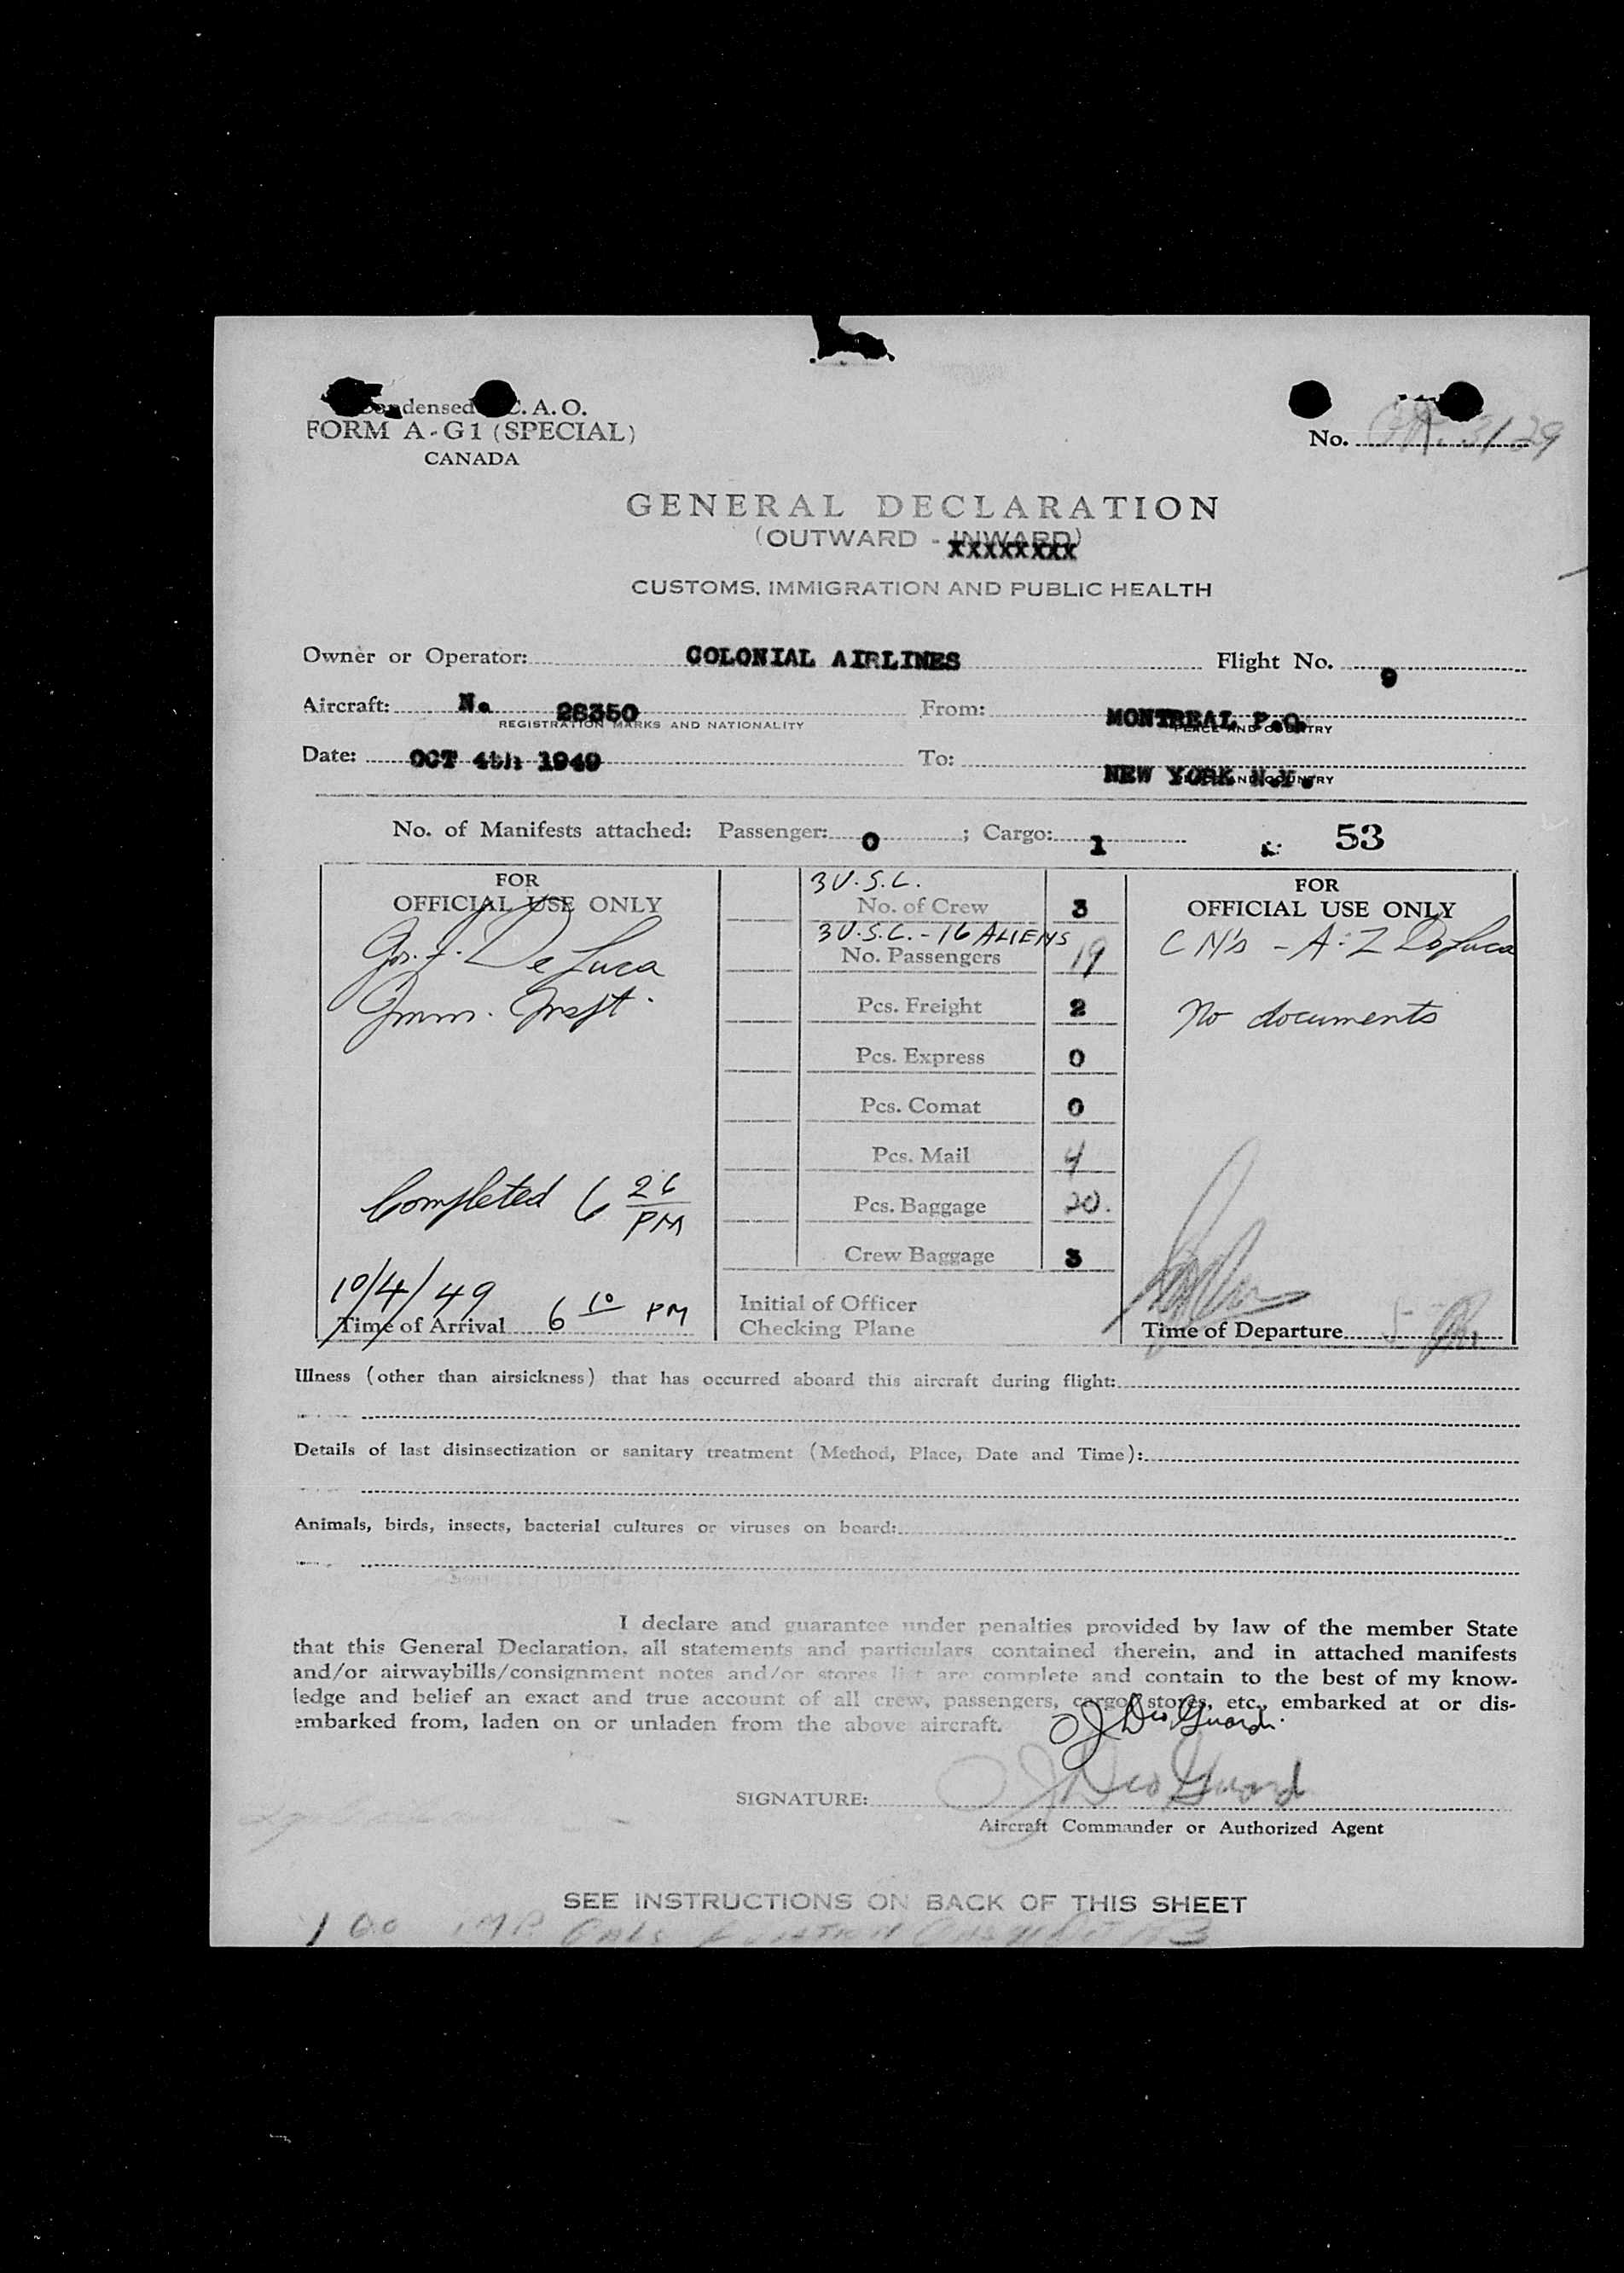 Condensed C.A.O.
FORM A-G1 (SPECIAL)
CANADA
No. 3129
GENERAL DECLARATION
(OUTWARD - INWARD)
XXXXXXXX
CUSTOMS, IMMIGRATION AND PUBLIC HEALTH
Owner or Operator: COLONIAL AIRLINES Flight No. 9
Aircraft: No 28350 From: MONTREAL P.Q.
REGISTRATION MARKS AND NATIONALITY PLACE AND COUNTRY
Date: OCT 4th 1949 To: NEW YORK N.Y.
PLACE AND COUNTRY
No. of Manifests attached: Passenger: 0 ; Cargo: 1 53
FOR
OFFICIAL USE ONLY
De Luca
Imm. Inspt.
Completed 6 26 PM
10/4/49
Time of Arrival 6 10 PM
3 U.S.C.
No. of Crew 3
3 U.S.C. - 16 ALIENS
No. Passengers 19
Pcs. Freight 2
Pcs. Express 0
Pcs. Comat 0
Pcs. Mail 4
Pcs. Baggage 20.
Crew Baggage 3
Initial of Officer
Checking Plane
FOR
OFFICIAL USE ONLY
C N's - A-Z DeLuca
No documents
Time of Departure
Illness (other than airsickness) that has occurred aboard this aircraft during flight:
Details of last disinsectization or sanitary treatment (Method, Place, Date and Time):
Animals, birds, insects, bacterial cultures or viruses on board:
I declare and guarantee under penalties provided by law of the member State
that this General Declaration, all statements and particulars contained therein, and in attached manifests
and/or airwaybills/consignment notes and/or stores list are complete and contain to the best of my know-
ledge and belief an exact and true account of all crew, passengers, cargo, stores, etc., embarked at or dis-
embarked from, laden on or unladen from the above aircraft.
SIGNATURE:
Aircraft Commander or Authorized Agent
SEE INSTRUCTIONS ON BACK OF THIS SHEET
100 IMP. GALS